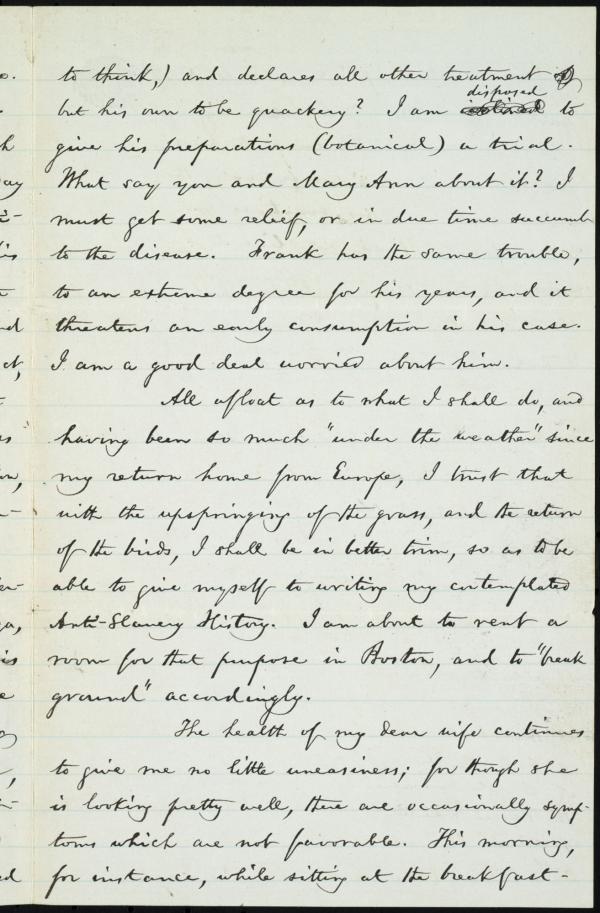 to think,) and declares all other treatment
disposed
but his own to be quackery? I am inclined to
give his preparations (botanical) a trial.
What say you and Mary Ann about it? I
must get some relief, or in due time succumb
to the disease. Frank has the same trouble,
to an extreme degree for his years, and it
threatens an early consumption in his case.
I am a good deal worried about him.
All afloat as to what I shall do, and
having been so much "under the weather" since
my return home from Europe, I trust that
with the upspringing of the grass, and the return
of the birds, I shall be in better trim, so as to be
able to give myself to writing my contemplated
Anti-Slavery History. I am about to rent a
room for that purpose in Boston, and to "break
ground" accordingly.
The health of my dear wife continues
to give me no little uneasiness; for though she
is looking pretty well, there are occasionally symp-
toms which are not favorable. This morning,
for instance, while sitting at the breakfast-